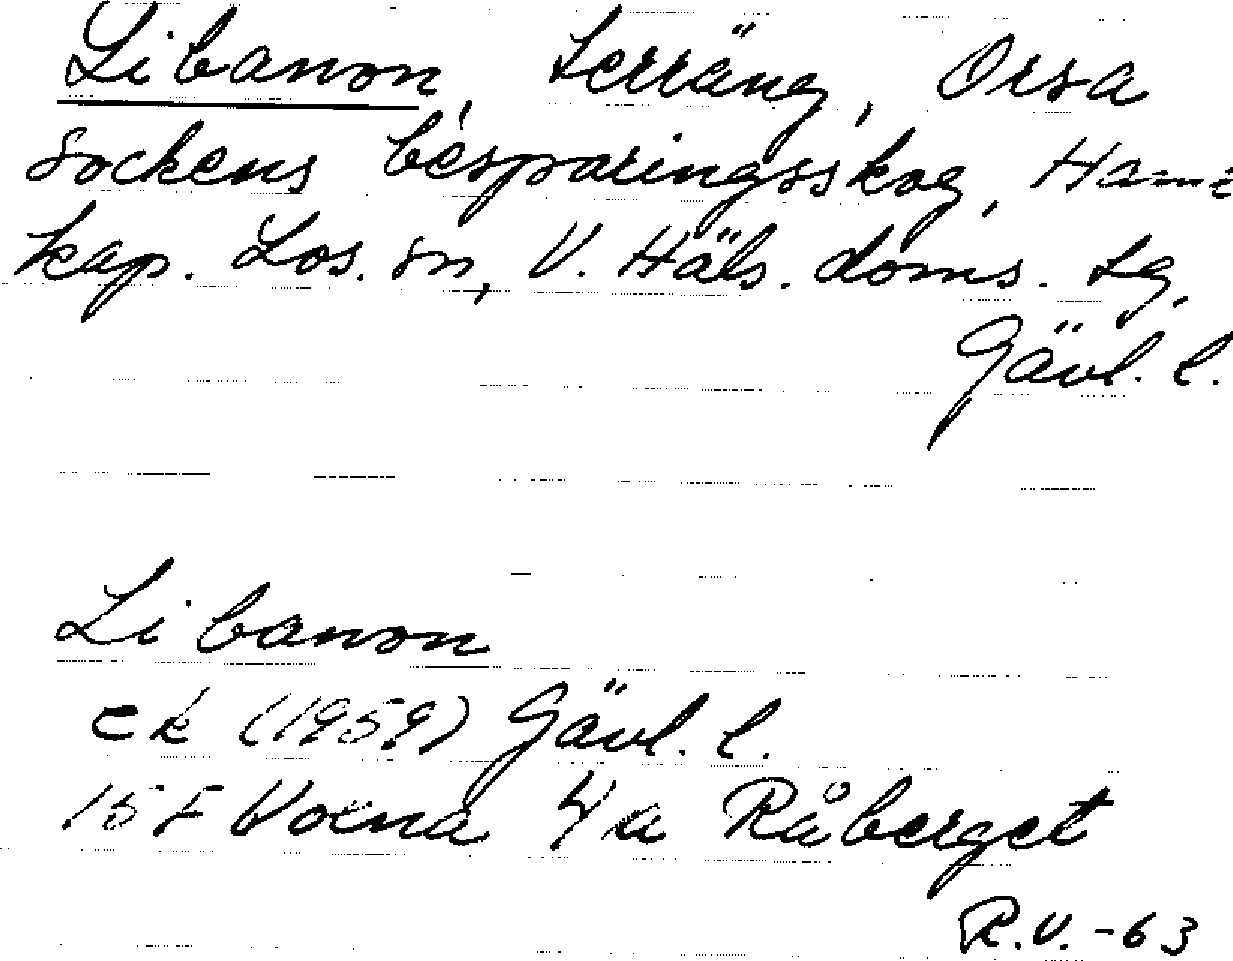 Libanon, terräng, Orsa
sockens besparingsskog, Hamra
kap. Los. sn, V. Häls. doms. tg,
Gävl. l.
Libanon
ek (1959) Gävl. l.
15F Voxna 4a Råberget
R.V. -63